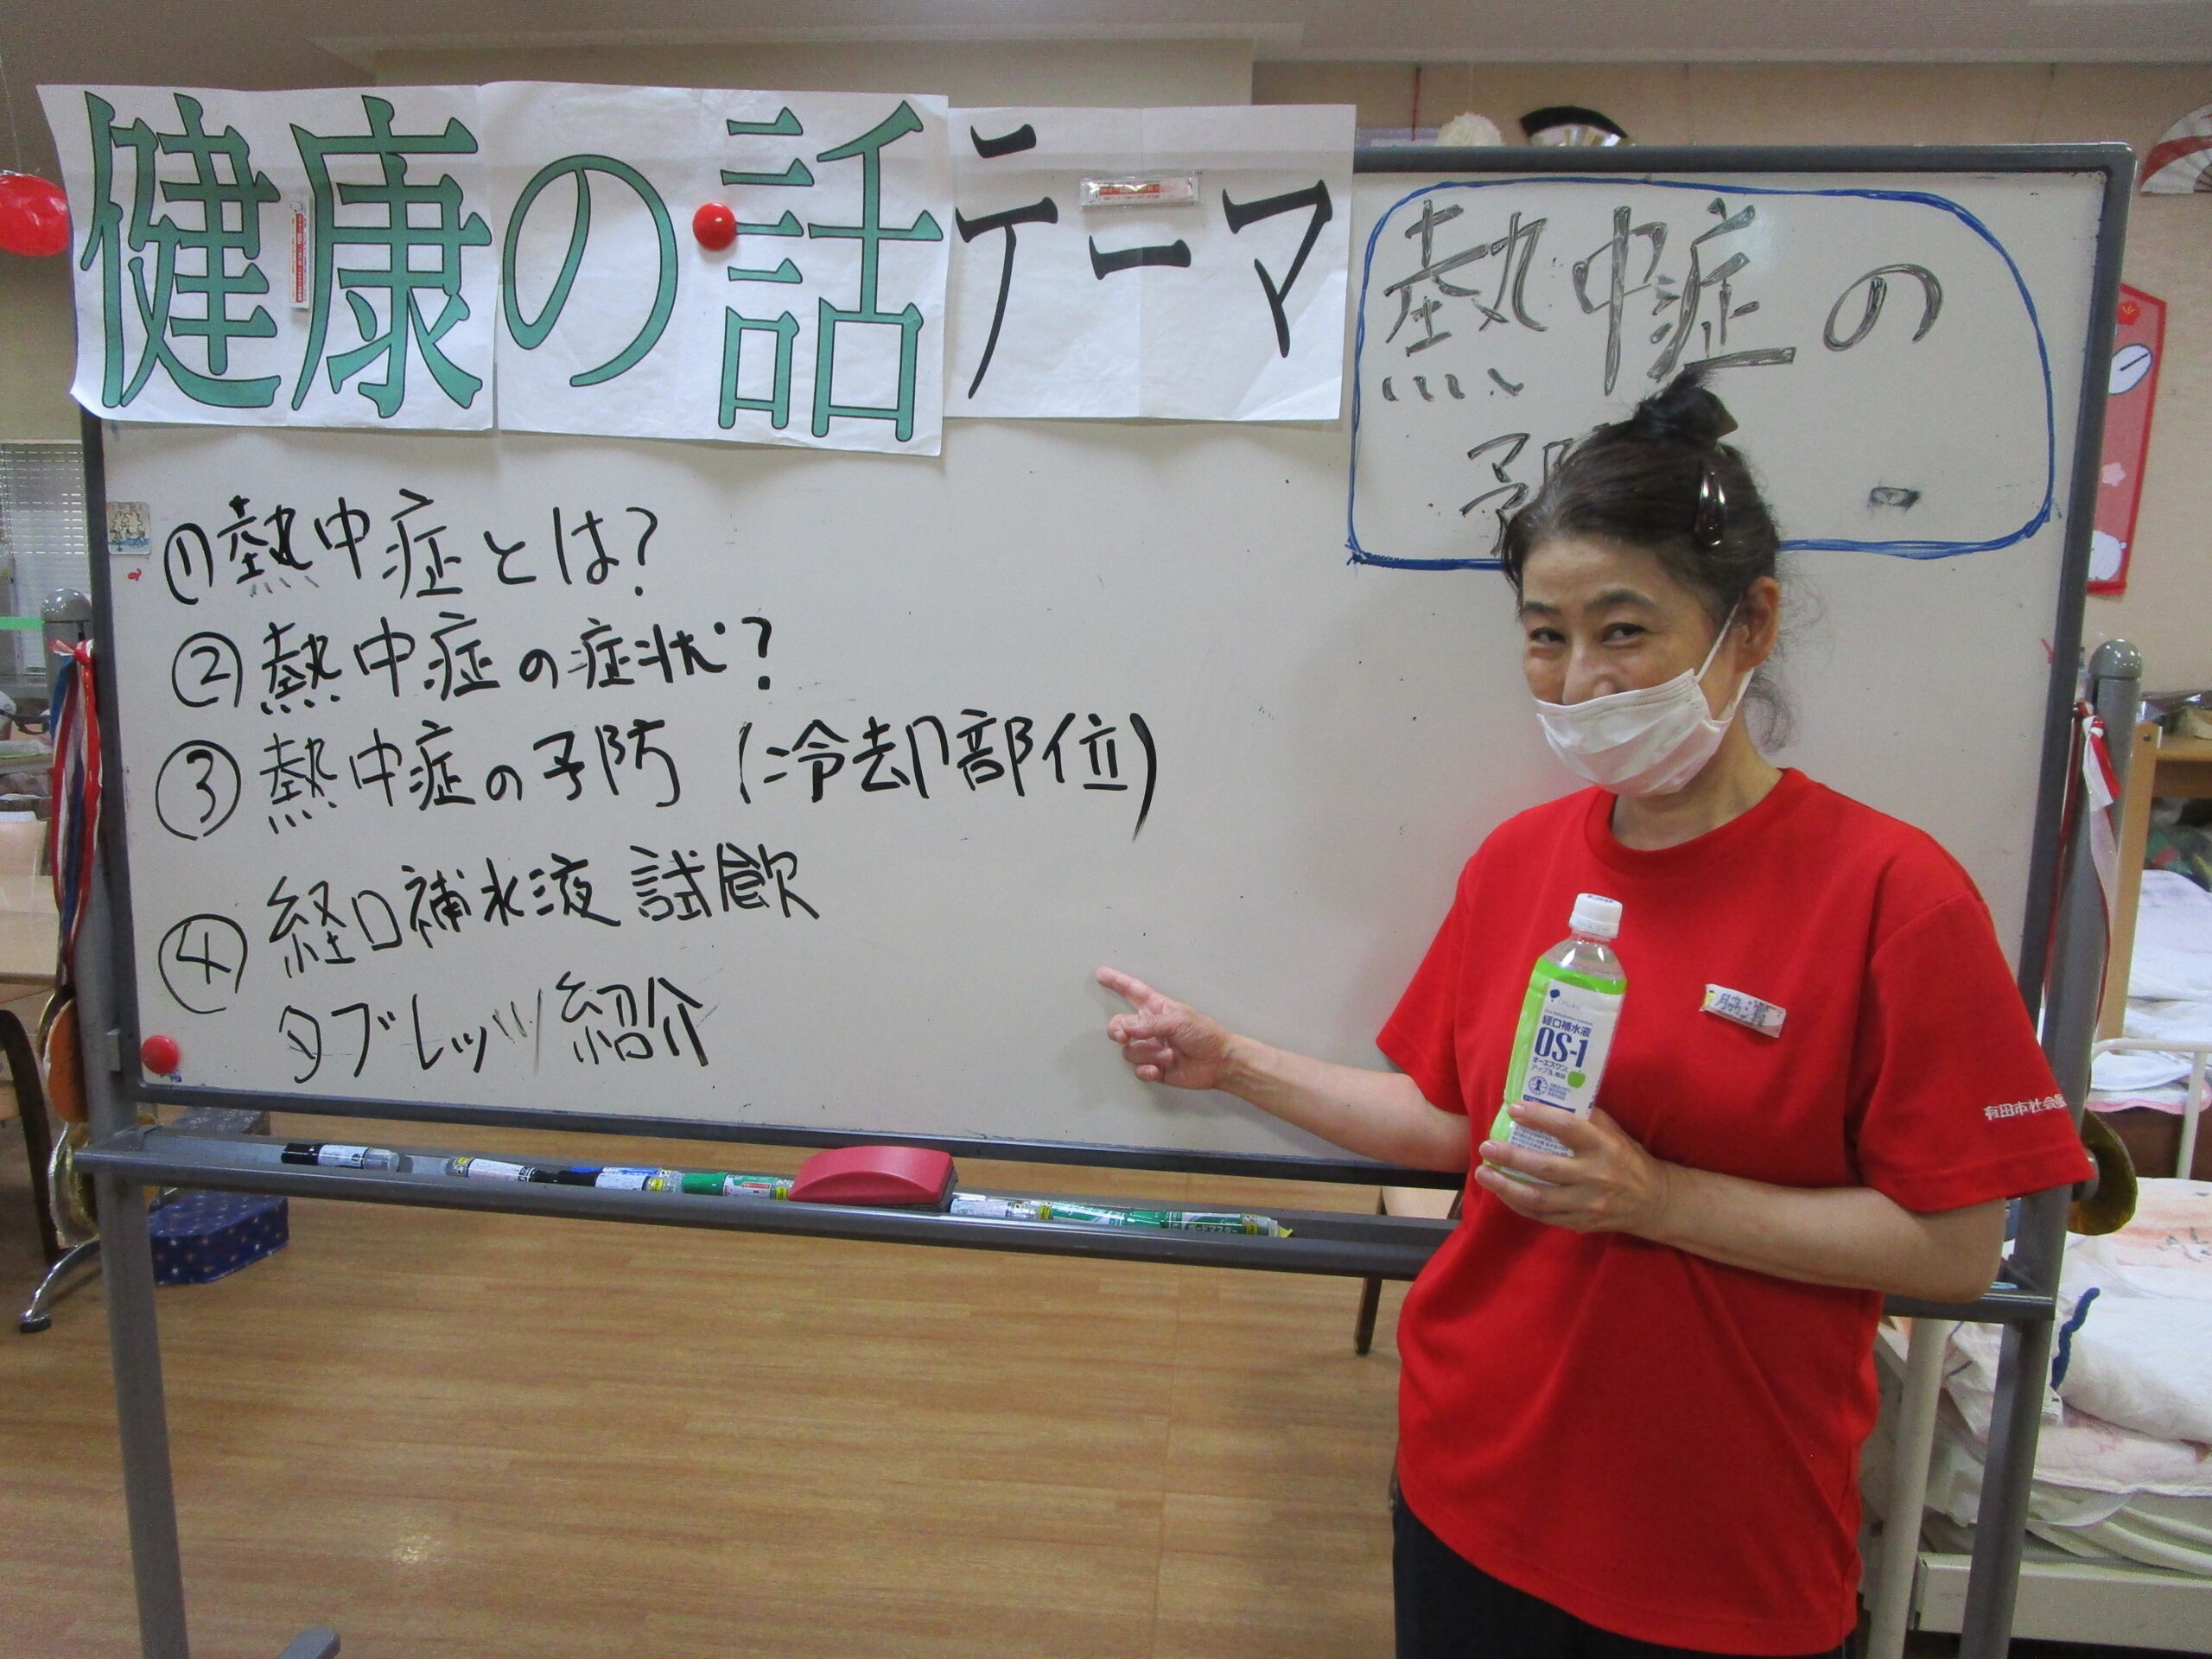 健康の話テーマ
熱中症の
予
①熱中症とは?
②熱中症の症状?
③熱中症の予防 (冷却部位)
④経口補水液 試飲
タブレッツ紹介
経口補水液
OS-1
オーエスワン
アップル風味
有田市社会